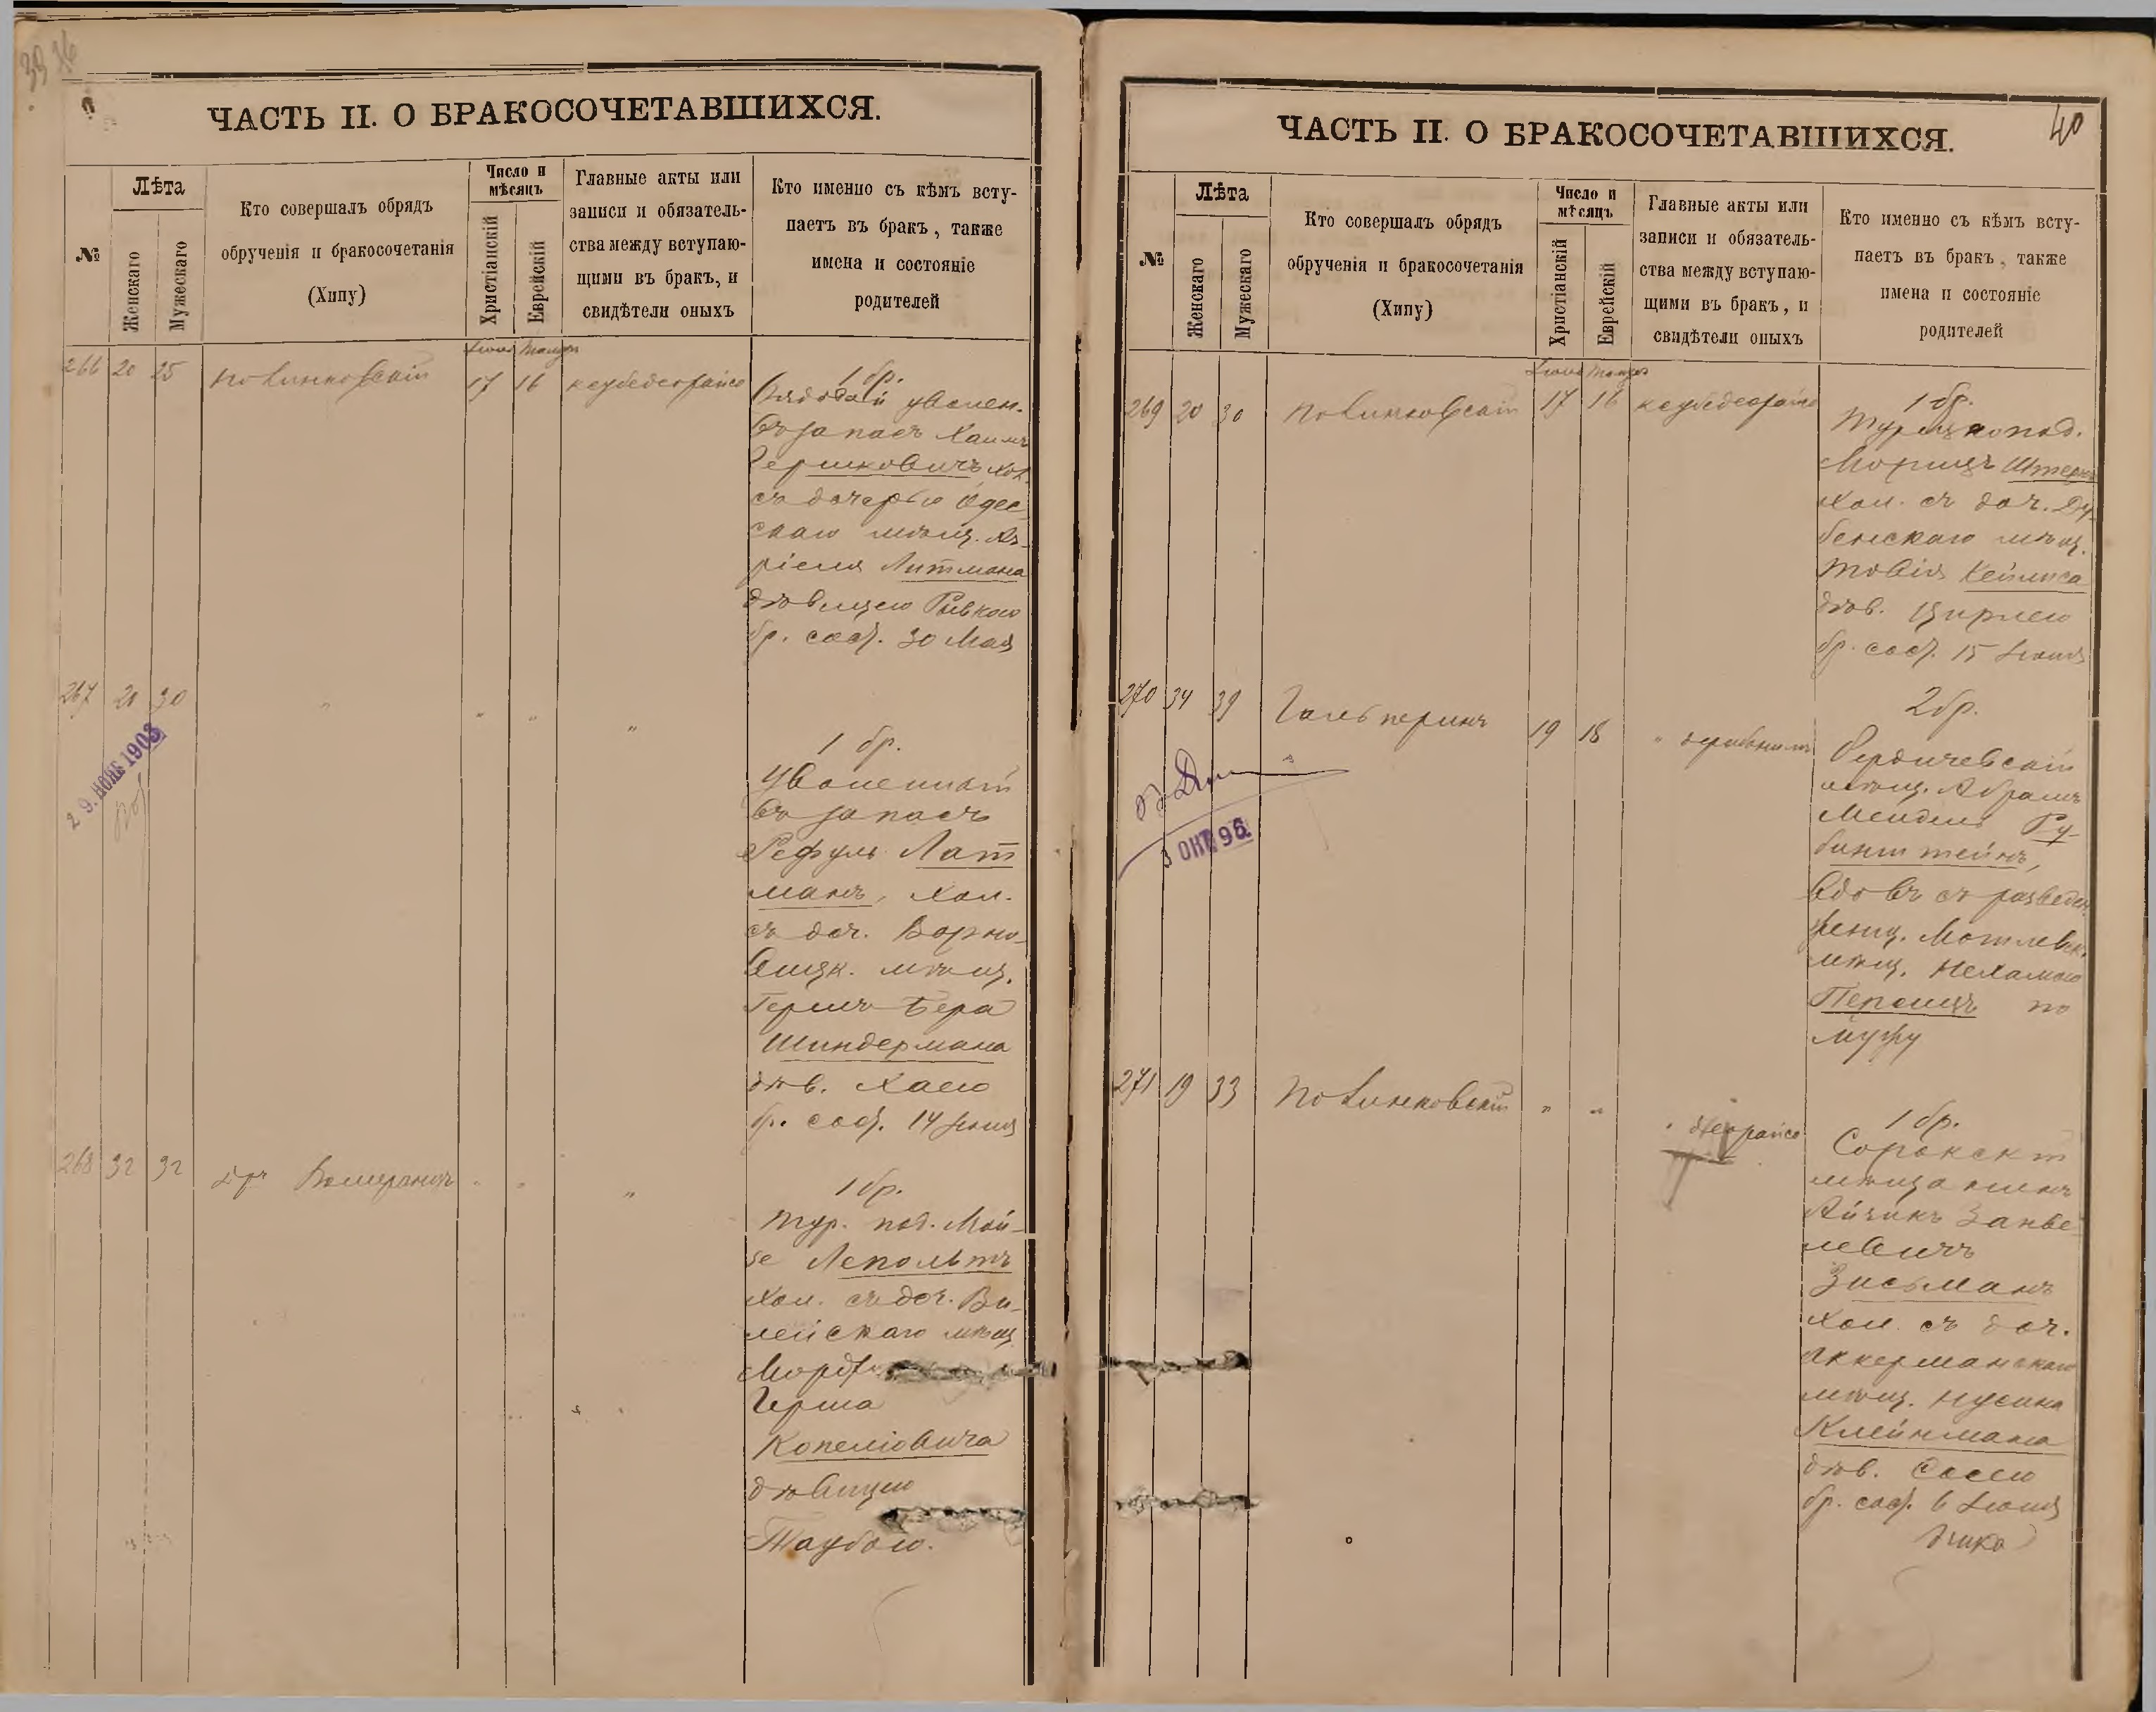 39
ЧАСТЬ II. О БРАКОСОЧЕТАВШИХСЯ.
№
Лѣта
Женскаго
Мужескаго
Кто совершалъ обрядъ
обрученія и бракосочетанія
(Хипу)
Число и
мѣсяцъ
Христіанскій
Еврейскій
Главные акты или
записи и обязатель-
ства между вступаю-
щими въ бракъ, и
свидѣтели оныхъ
Кто именно съ кѣмъ всту-
паетъ въ бракъ, также
имена и состояніе
родителей
266 20 25 17 16
1 бр.
Рядовой уволен.
въ запасъ Хаимъ
Гершковичъ, хол.
съ дочерью Одес-
скаго мѣщ. Аз-
ріеля Литмана
дѣвицею Рывкою
бр. сост. 30 Мая
267 20 30 " " " "
29. НОЯБ 1903
1 бр.
Уволенный
въ запасъ
Рефуль Лат
манъ, хол.
съ доч. Ворно-
вицк. мѣщ.
Гершъ Бера
Шиндермана
дѣв. Хаею
бр. сост. 14 Іюня
268 32 32 Др Помѣранцъ " " "
1 бр.
Тур. под. Мой-
зе Лепольтъ
хол. съ доч. Ви-
лейскаго мѣщ
Герша
Копеліовича
дѣвицею
Таубою.
40
ЧАСТЬ II. О БРАКОСОЧЕТАВШИХСЯ.
№
Лѣта
Женскаго
Мужескаго
Кто совершалъ обрядъ
обрученія и бракосочетанія
(Хипу)
Число и
мѣсяцъ
Христіанскій
Еврейскій
Главные акты или
записи и обязатель-
ства между вступаю-
щими въ бракъ, и
свидѣтели оныхъ
Кто именно съ кѣмъ всту-
паетъ въ бракъ, также
имена и состояніе
родителей
269 20 30 17 16
1 бр.
Турецко под.
Морицъ Штернъ
хол. съ доч. Ду-
бенскаго мѣщ.
Товія Кейлиса
дѣв. Цирлею
бр. сост. 15 Іюня
270 34 39 Гальперинъ 19 18
3 ОКТ 96
2 бр.
Бердичевскій
мѣщ. Абрамъ
Мендель Ру-
бинштейнъ,
вдовъ съ разведен
женщ. Могилевск.
мѣщ. Нехамою
Пеполицъ по
мужу
271 19 33 " "
1 бр.
Сорокскій
мѣщанинъ
Айзикъ Занве-
левичъ
Зисьманъ
хол. съ доч.
Аккерманскаго
мѣщ. Нусина
Клейнмана
дѣв. Сосею
бр. сост. 6 Іюня